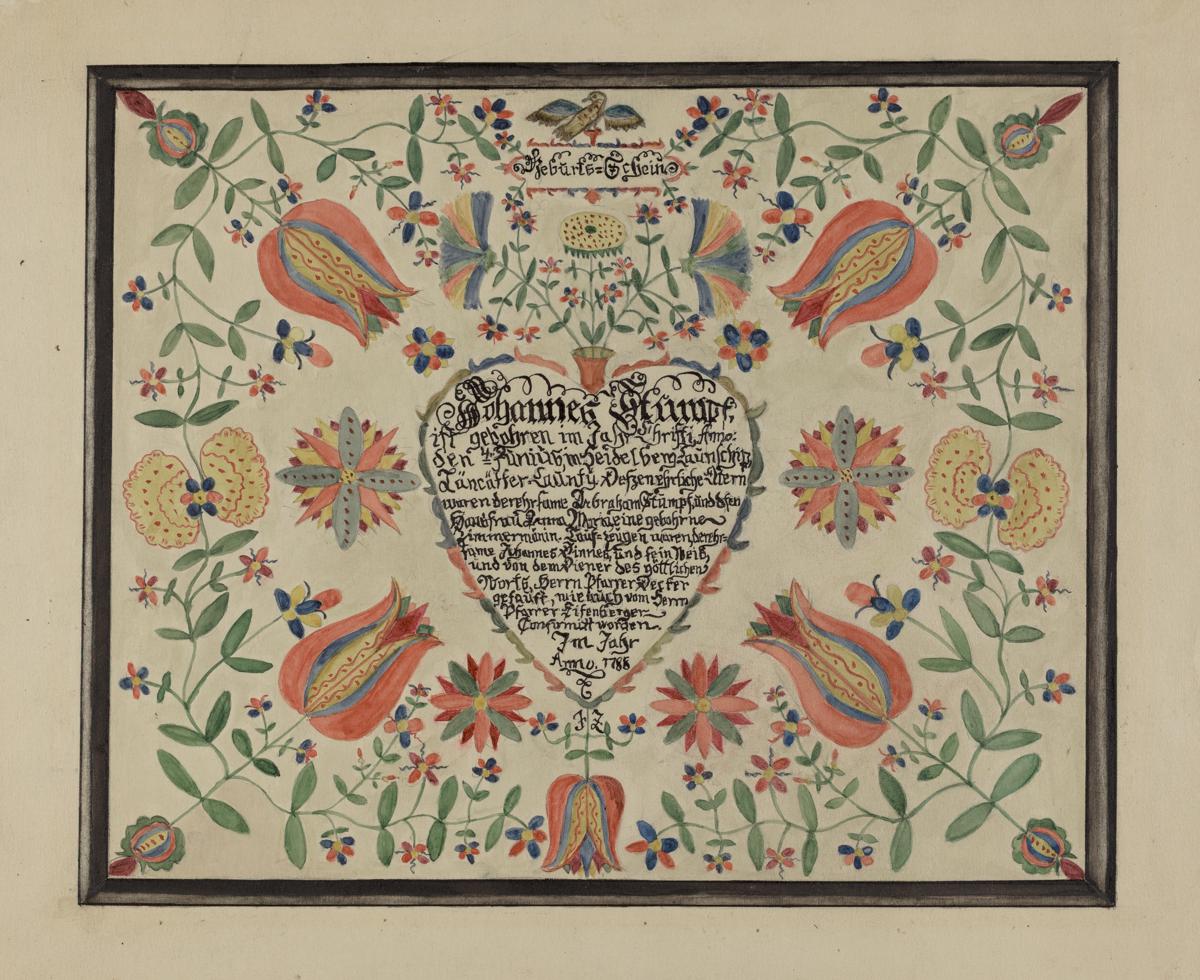 Geburts=Schein
Johannes Stumpf,
ist gebohren im Jahr Christi, Anno:
den 4= Junius in Heidelberg Taunschip,
Läncäster-Caunty. Deßen ehrliche Eltern
waren der ehrsame Abraham Stumpf, und deßen
Hausfrau Anna Maria, eine gebohrne
Zimmermänin. Tauf-zeugen waren der ehr=
same Johannes Zinnes, und sein Weib,
und von dem Diener des göttlichen
Worts, Herrn Pfarrer Decker
getauft, wie auch vom Herrn
Pfarrer Eisenberger
Confirmirt worden.
Im Jahr
Anno. 1788
F Z